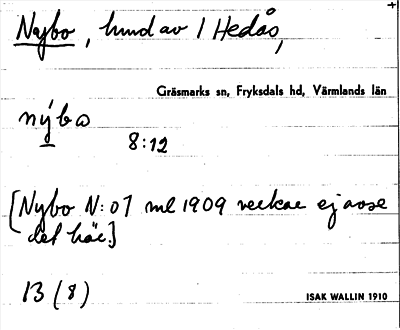 Nybo, hmd av 1 Hedås,
Gräsmarks sn, Fryksdals hd, Värmlands län
nýbo
8:12
[Nybo N:o 1 ml 1909 verkar ej avse
det här.]
13 (8)
ISAK WALLIN 1910